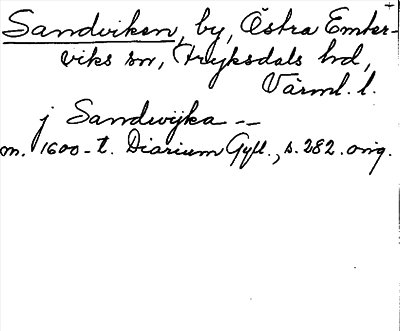 Sandviken, by, Östra Emter-
viks sn, Fryksdals hd,
Värml. l.
j Sandwijka --
m. 1600-t. Diarium Gyll., s. 282. orig.